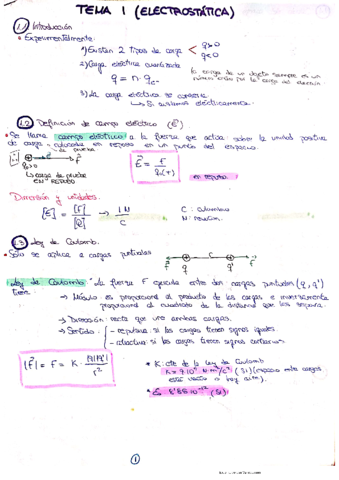 TEMA 1 (ELECTROSTÁTICA)
1.1 Introducción
• Experimentalmente:
1) Existen 2 tipos de carga q>0
q<0
2) Carga eléctrica cuantizada
la carga de un objeto siempre es un
q = n · qe-
3) La carga eléctrica se conserva
↳ Si sistema eléctricamente
1.2 Definición de campo eléctrico (E⃗)
• Se llama campo eléctrico a la fuerza que actúa sobre la unidad positiva
de carga colocada en reposo en un punto del espacio.
E⃗ = F⃗ / q₀(+)
↳ carga de prueba
EN REPOSO
en reposo
Dimensión y unidades.
[E] = [F] / [Q] → 1N / C
C: Culombio
N: Newton.
1.3 Ley de Coulomb.
• Sólo se aplica a cargas puntuales
F⃗ F⃗
q q'
Ley de Coulomb: "La fuerza F ejercida entre dos cargas puntuales (q, q')
tiene:
→ Módulo: es proporcional al producto de las cargas e inversamente
proporcional al cuadrado de la distancia que las separa.
→ Dirección: recta que une ambas cargas.
→ Sentido: - repulsiva si las cargas tienen signos iguales
- atractiva si las cargas tienen signos contrarios
|F⃗| = F = K · |q||q'| / r²
* K: cte de la Ley de Coulomb
K = 9·10⁹ N·m²/C² (SI) (espacio entre cargas
está vacío o hay aire).
* 8'85·10⁻¹² (SI)
1